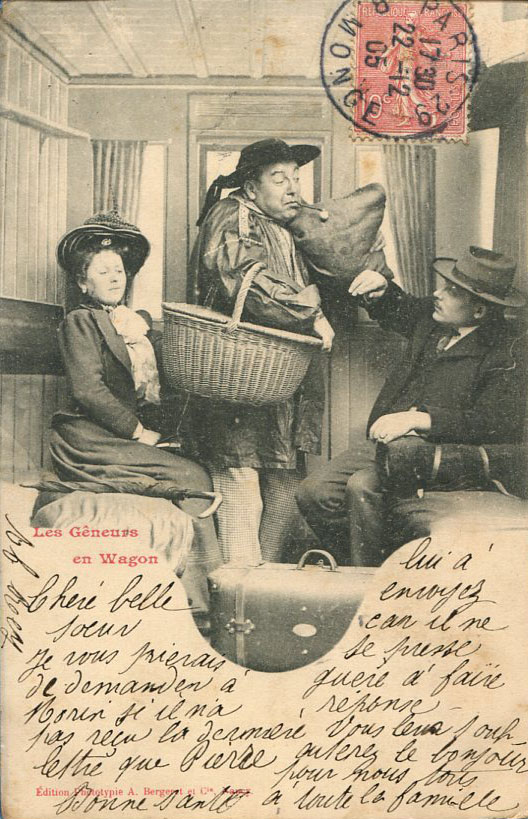 REPUBLIQUE FRANÇAISE
10c
PARIS 29
17 30
22 - 12
05
MONGE
Les Gêneurs
en Wagon
Cheré belle
sœur
je vous prierais
de demander à
Morin si il n'a
pas reçu la dernière
lettre que Pierre
lui à
envoyez
car il ne
se presse
guère à faire
réponse -
Vous leur souh-
aiterez le bonjour
pour nous tous
Bonne Santé à toute la famille
Édition Phototypie A. Bergeret et Cie, Nancy.